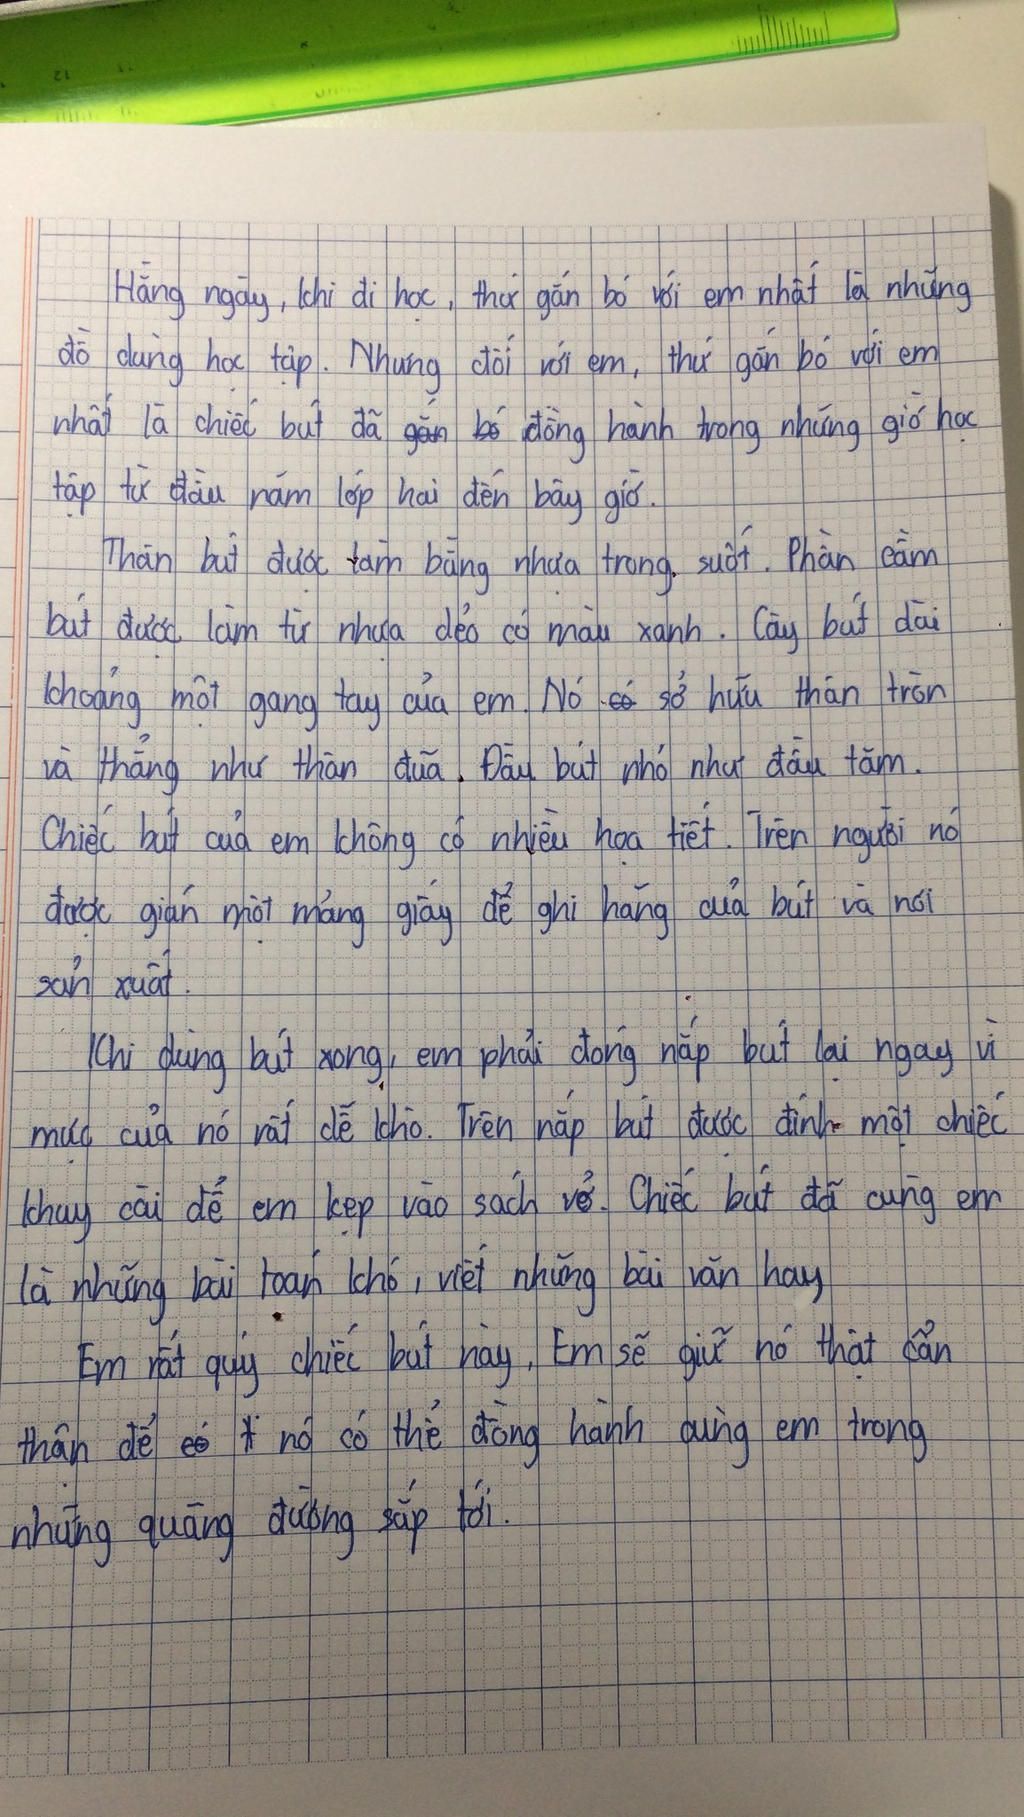 Hằng ngày, khi đi học, thứ gắn bó với em nhất là những
đồ dùng học tập. Nhưng đối với em, thứ gắn bó với em
nhất là chiếc bút đã gắn bó đồng hành trong những giờ học
tập từ đầu năm lớp hai đến bây giờ.
Thân bút được làm bằng nhựa trong suốt. Phần cầm
bút được làm từ nhựa dẻo có màu xanh. Cây bút dài
khoảng một gang tay của em. Nó có sở hữu thân tròn
và thẳng như thân đũa. Đầu bút nhỏ như đầu tăm.
Chiếc bút của em không có nhiều họa tiết. Trên người nó
được gián một mảng giấy để ghi hãng của bút và nơi
sản xuất.
Khi dùng bút xong, em phải đóng nắp bút lại ngay vì
mực của nó rất dễ khô. Trên nắp bút được đính một chiếc
khuy cài để em kẹp vào sách vở. Chiếc bút đã cùng em
là những bài toán khó, viết những bài văn hay
Em rất quý chiếc bút này. Em sẽ giữ nó thật cẩn
thận để có t nó có thể đồng hành cùng em trong
những quãng đường sắp tới.